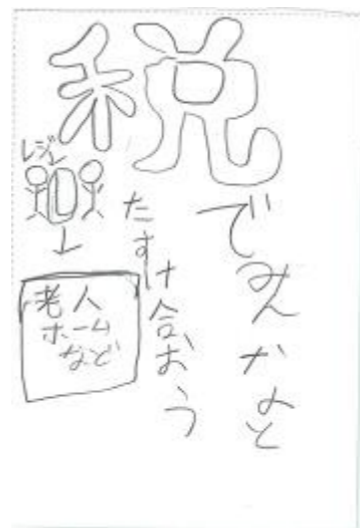 税
でみんなと
たすけ合おう
レジ
老人
ホーム
など